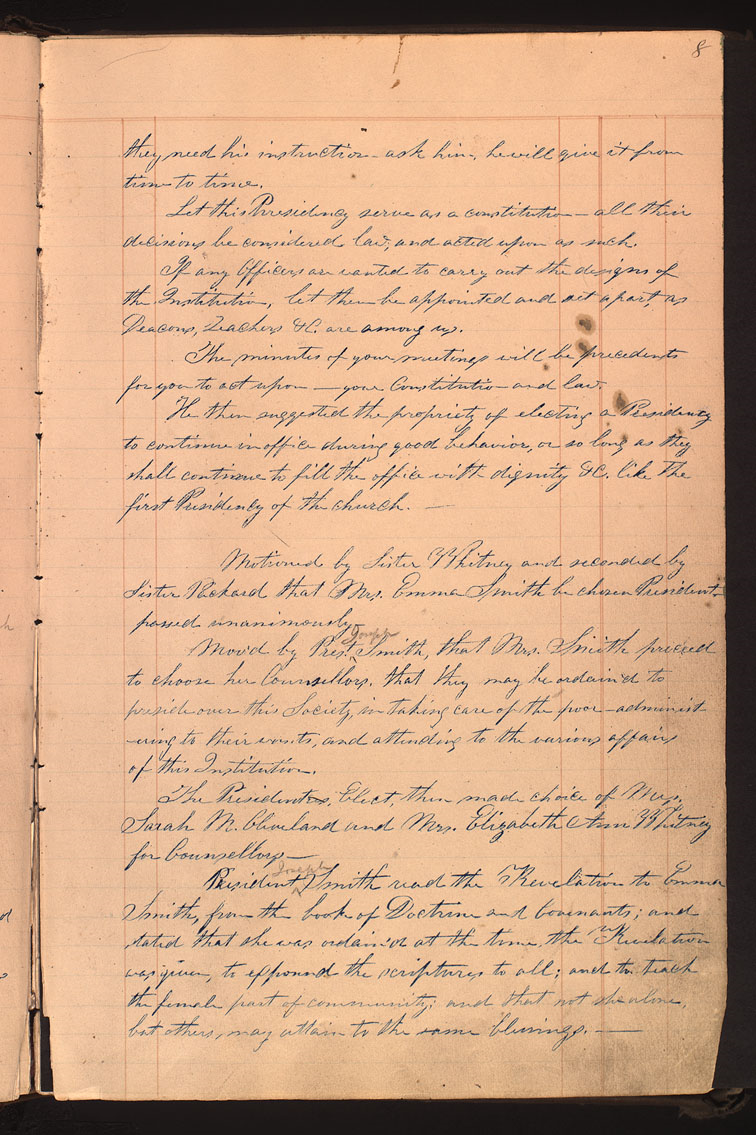 8
they need his instruction - ask him, he will give it from
time to time.
Let this Presidency serve as a constitution - all their
decisions be considered law, and acted upon as such.
If any Officers are wanted to carry out the designs of
the Institution, let them be appointed and set apart, as
Deacons, Teachers &C. are among us.
The minutes of your meetings will be precedents
for you to act upon — your Constitution and law.
He then suggested the propriety of electing a Presidency
to continue in office during good behavior, or so long as they
shall continue to fill the office with dignity &C. like the
first Presidency of the church. —
Motioned by Sister Whitney and seconded by
Sister Packard that Mrs. Emma Smith be chosen President -
passed unanimously -
Mov'd by Prest. Joseph Smith, that Mrs. Smith proceed
to choose her Counsellors, that they may be ordain'd to
preside over this Society, in taking care of the poor - administ-
ering to their wants, and attending to the various affairs
of this Institution.
The Presidentess Elect, then made choice of Mrs.
Sarah M. Cleveland and Mrs. Elizabeth Ann Whitney
for Counsellors —
President Joseph Smith read the Revelation to Emma
Smith, from the book of Doctrine and Covenants; and
stated that she was ordain'd at the time, the Revelation
was given, to expound the scriptures to all; and to teach
the female part of community; and that not she alone,
but others, may attain to the same blessings. —